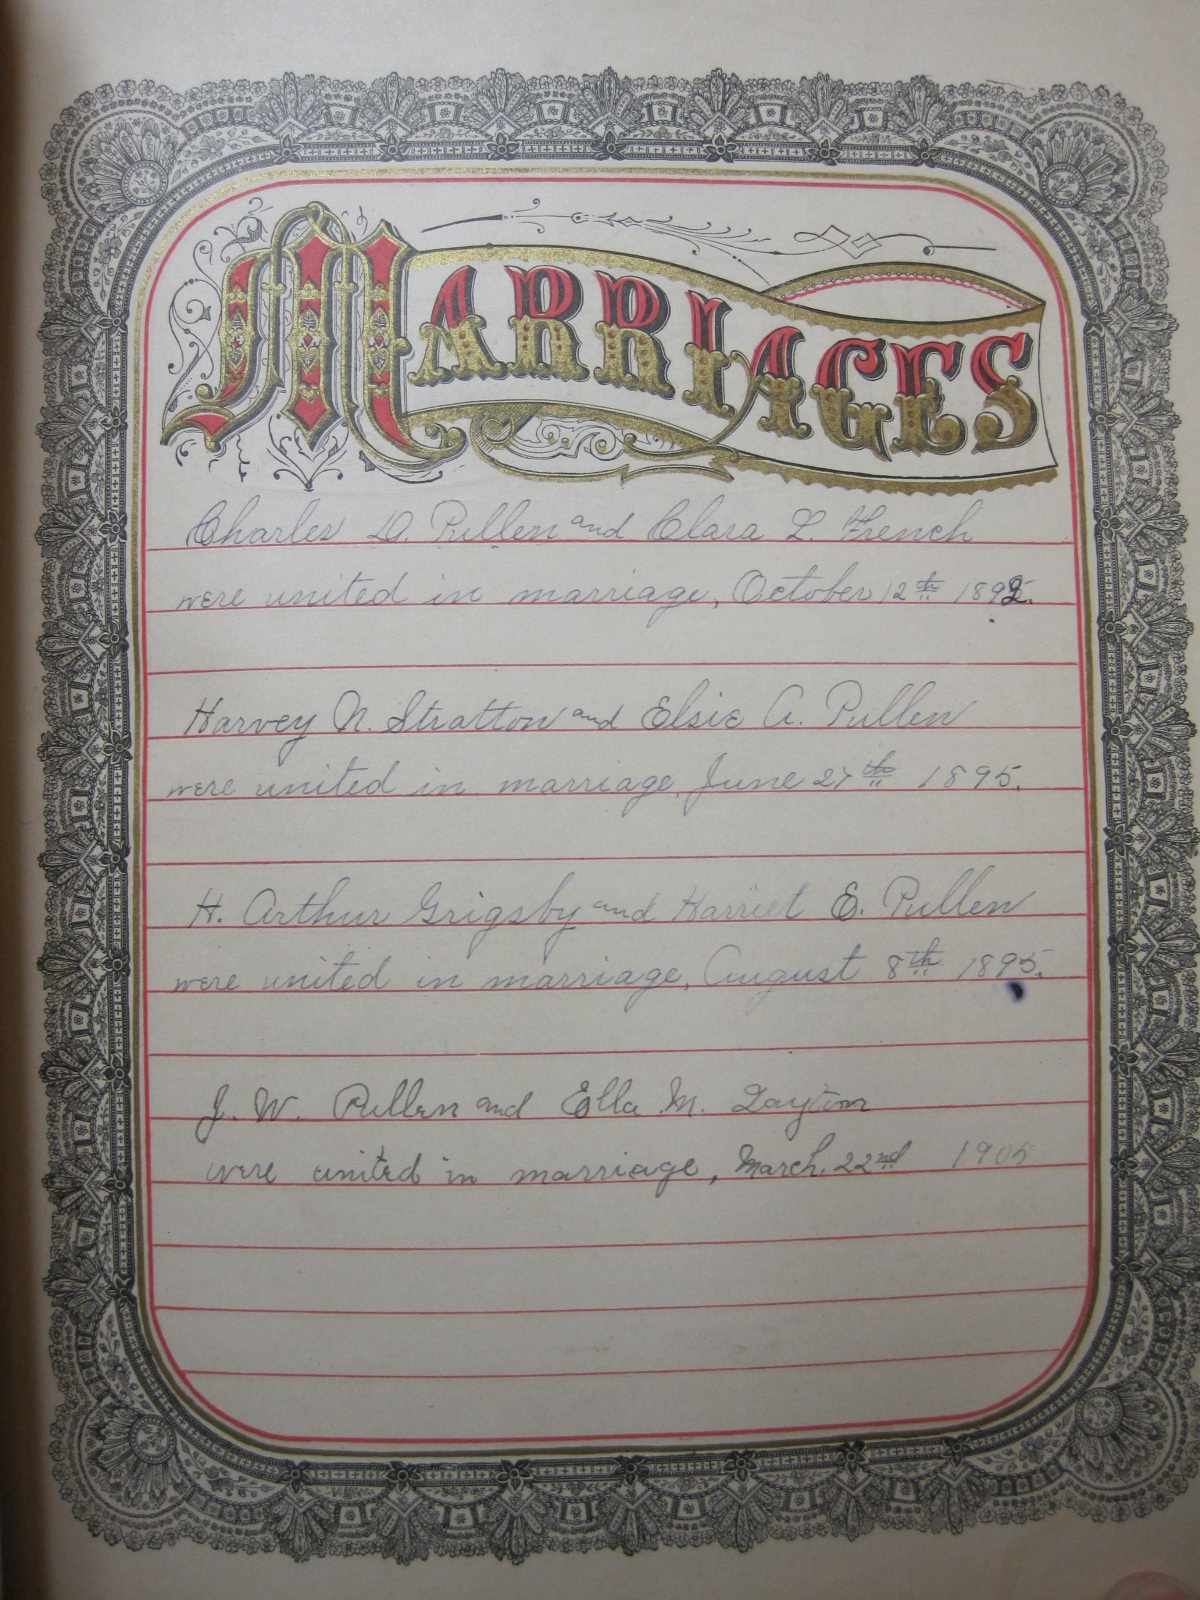 MARRIAGES
Charles D. Pullen and Clara L. French
were united in marriage, October 12th 1892.
Harvey N. Stratton and Elsie A. Pullen
were united in marriage, June 27th 1895.
H. Arthur Grigsby and Harriet E. Pullen
were united in marriage, August 8th 1895.
J. W. Pullen and Ella M. Layton
were united in marriage, March 22nd 1905